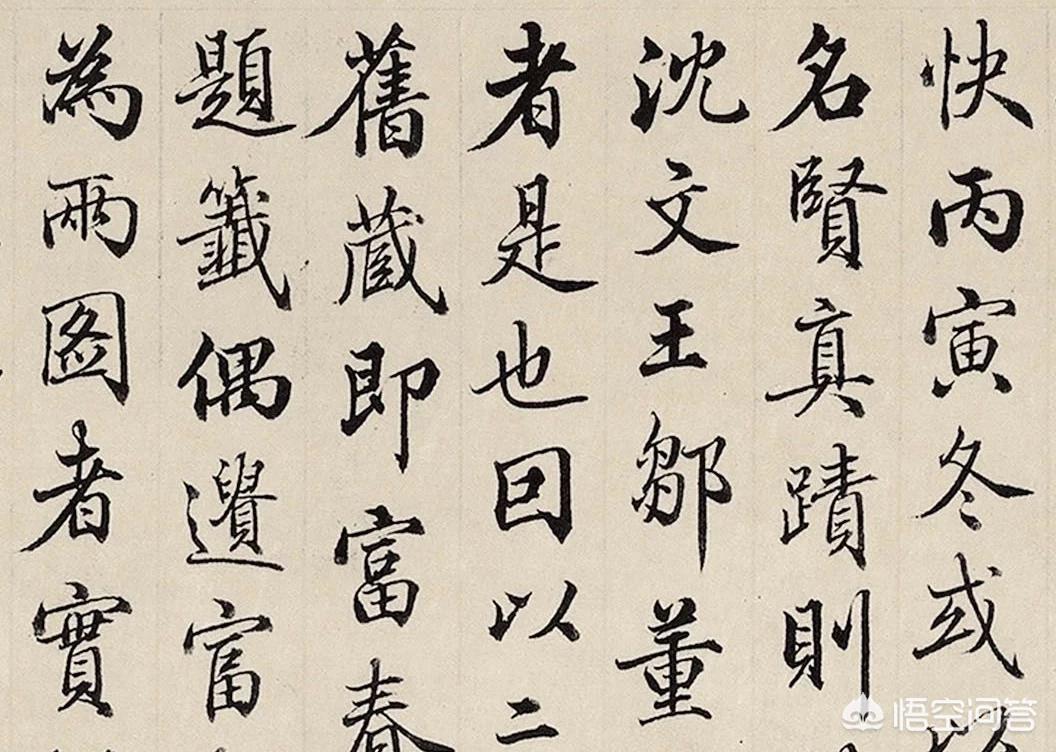 快丙寅冬或以
名賢真蹟則
沈文王鄒董
者是也因以二
舊藏即富春
題籤偶遺富
為兩圖者實
悟空问答